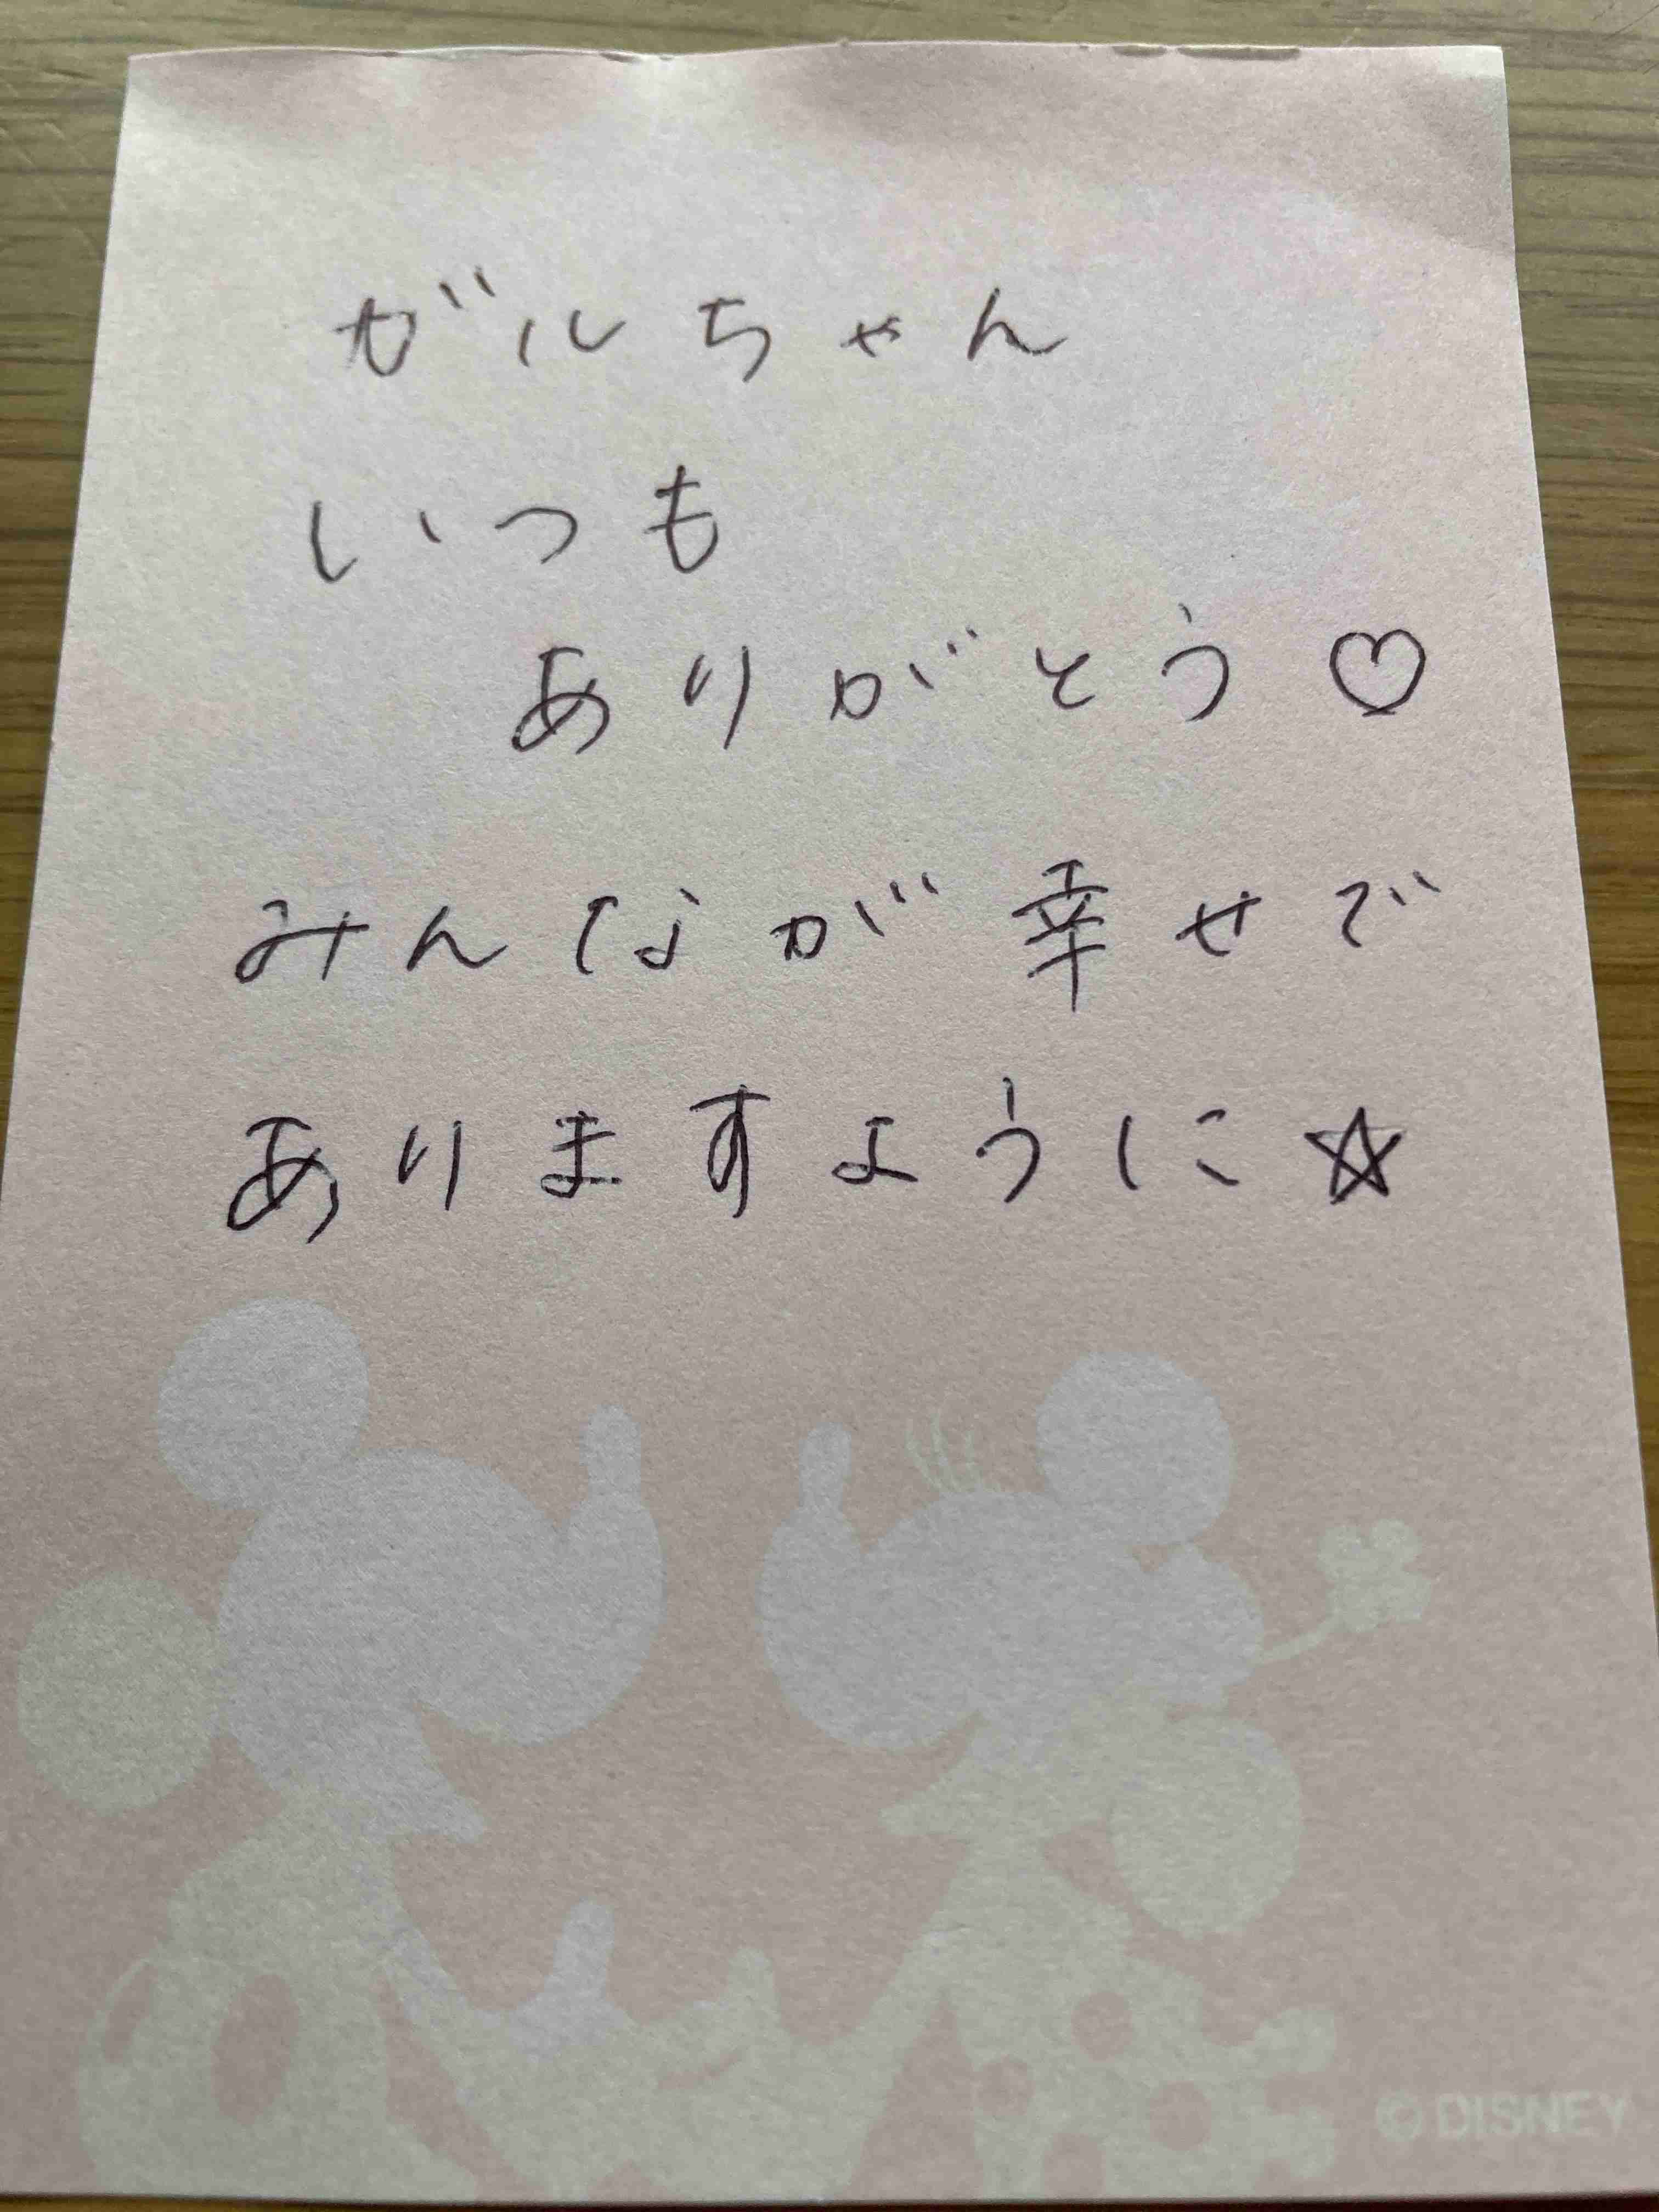 ガルちゃん
いつも
ありがとう♡
みんなが幸せで
ありますように☆
© DISNEY